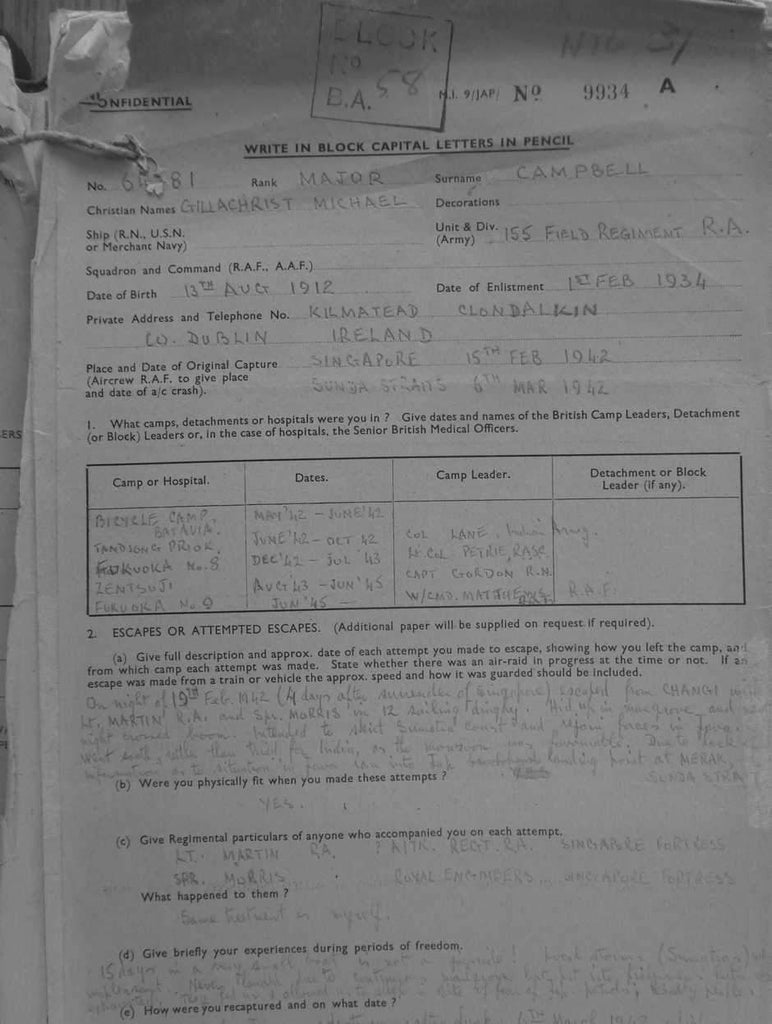 BLOCK
No
B.A. 58
CONFIDENTIAL
M.I. 9/JAP/ No 9934 A
WRITE IN BLOCK CAPITAL LETTERS IN PENCIL
No. 81 Rank MAJOR Surname CAMPBELL
Christian Names GILLACHRIST MICHAEL Decorations
Ship (R.N., U.S.N. or Merchant Navy)
Unit & Div. (Army) 155 FIELD REGIMENT R.A.
Squadron and Command (R.A.F., A.A.F.)
Date of Birth 13TH AUG 1912 Date of Enlistment 1ST FEB 1934
Private Address and Telephone No. KILMATEAD CLONDALKIN
CO. DUBLIN IRELAND
Place and Date of Original Capture SINGAPORE 15TH FEB 1942
(Aircrew R.A.F. to give place
and date of a/c crash). SUNDA STRAITS 6TH MAR 1942
1. What camps, detachments or hospitals were you in ? Give dates and names of the British Camp Leaders, Detachment
(or Block) Leaders or, in the case of hospitals, the Senior British Medical Officers.
Camp or Hospital. Dates. Camp Leader. Detachment or Block
Leader (if any).
BICYCLE CAMP, BATAVIA. MAY '42 - JUNE '42 COL LANE, Indian Army.
TANDJONG PRIOK, JUNE '42 - OCT 42 Lt. Col PETRIE, RASC
FUKUOKA No. 8 DEC '42 - JUL '43 CAPT GORDON R.N.
ZENTSUJI AUG 43 - JUN '45
FUKUOKA No. 9 JUN '45 — W/CMD. MATTHEWS R.A.F.
2. ESCAPES OR ATTEMPTED ESCAPES. (Additional paper will be supplied on request if required).
(a) Give full description and approx. date of each attempt you made to escape, showing how you left the camp, and
from which camp each attempt was made. State whether there was an air-raid in progress at the time or not. If an
escape was made from a train or vehicle the approx. speed and how it was guarded should be included.
On night of 19th Feb. 1942 (4 days after surrender of Singapore) escaped from CHANGI with
Lt. MARTIN R.A. and Spr. MORRIS in 12 sailing dinghy. Hid up in mangrove, and next
night crossed boom. Intended to skirt Sumatra coast and rejoin forces in Java.
went south, rather than tried for India, as the monsoon was favourable. Due to lack of
information as to situation in Java ran into Jap landing point at MERAK,
SUNDA STRAIT
(b) Were you physically fit when you made these attempts ?
YES.
(c) Give Regimental particulars of anyone who accompanied you on each attempt.
LT. MARTIN RA. ? A/TK. REGT. RA. SINGAPORE FORTRESS
SPR. MORRIS, ROYAL ENGINEERS SINGAPORE FORTRESS
What happened to them ?
Same treatment as myself.
(d) Give briefly your experiences during periods of freedom.
15 days in a very small boat is not a picnic!
(e) How were you recaptured and on what date ?